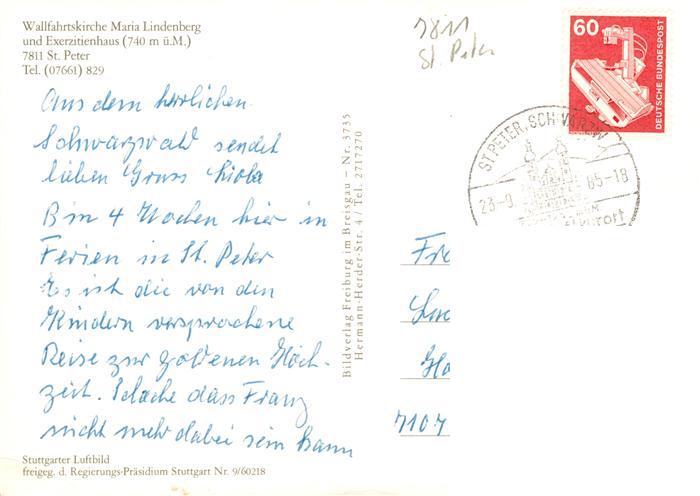 Wallfahrtskirche Maria Lindenberg
und Exerzitienhaus (740 m ü.M.)
7811 St. Peter
Tel. (07661) 829
7811
St. Peter
60
DEUTSCHE BUNDESPOST
ST. PETER, SCHWARZW
23-9 85-18
Aus dem herrlichen
Schwarzwald sendet
lieben Gruss
Bin 4 Wochen hier in
Ferien in St. Peter
Es ist die von den
Kindern versprochene
Reise zur goldenen Hoch-
zeit. Schade dass Franz
nicht mehr dabei sein kann
Bildverlag Freiburg im Breisgau – Nr. 3735
Hermann-Herder-Str. 4 / Tel. 2717270
Fre
Ho
7107
Stuttgarter Luftbild
freigeg. d. Regierungs-Präsidium Stuttgart Nr. 9/60218